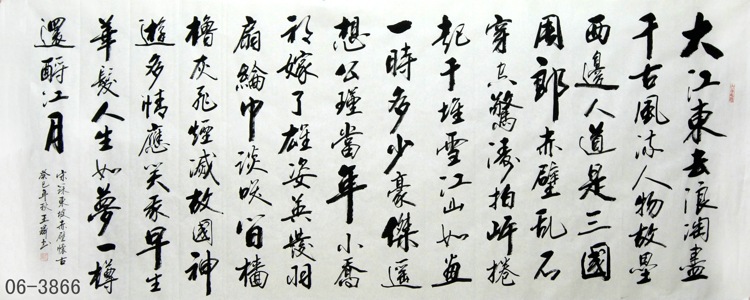 大江東去浪淘盡
千古風流人物故壘
西邊人道是三國
周郎赤壁乱石
穿空驚濤拍岸捲
起千堆雪江山如畫
一時多少豪傑遥
想公瑾當年小喬
初嫁了雄姿英發羽
扇綸巾談笑間檣
櫓灰飛煙滅故國神
遊多情應笑我早生
華髮人生如夢一樽
還酹江月
東坡赤壁懷古
癸巳年秋王
06-3866